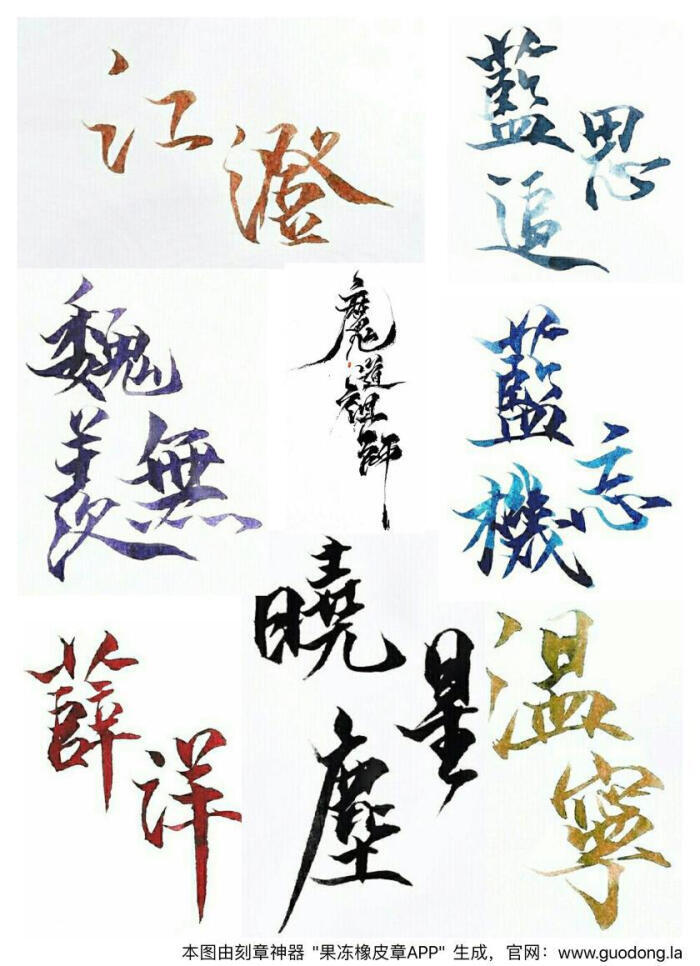 江澄
藍思追
魏無羨
魔道祖師
藍忘機
薛洋
曉星塵
溫寧
本图由刻章神器 "果冻橡皮章APP" 生成，官网：www.guodong.la